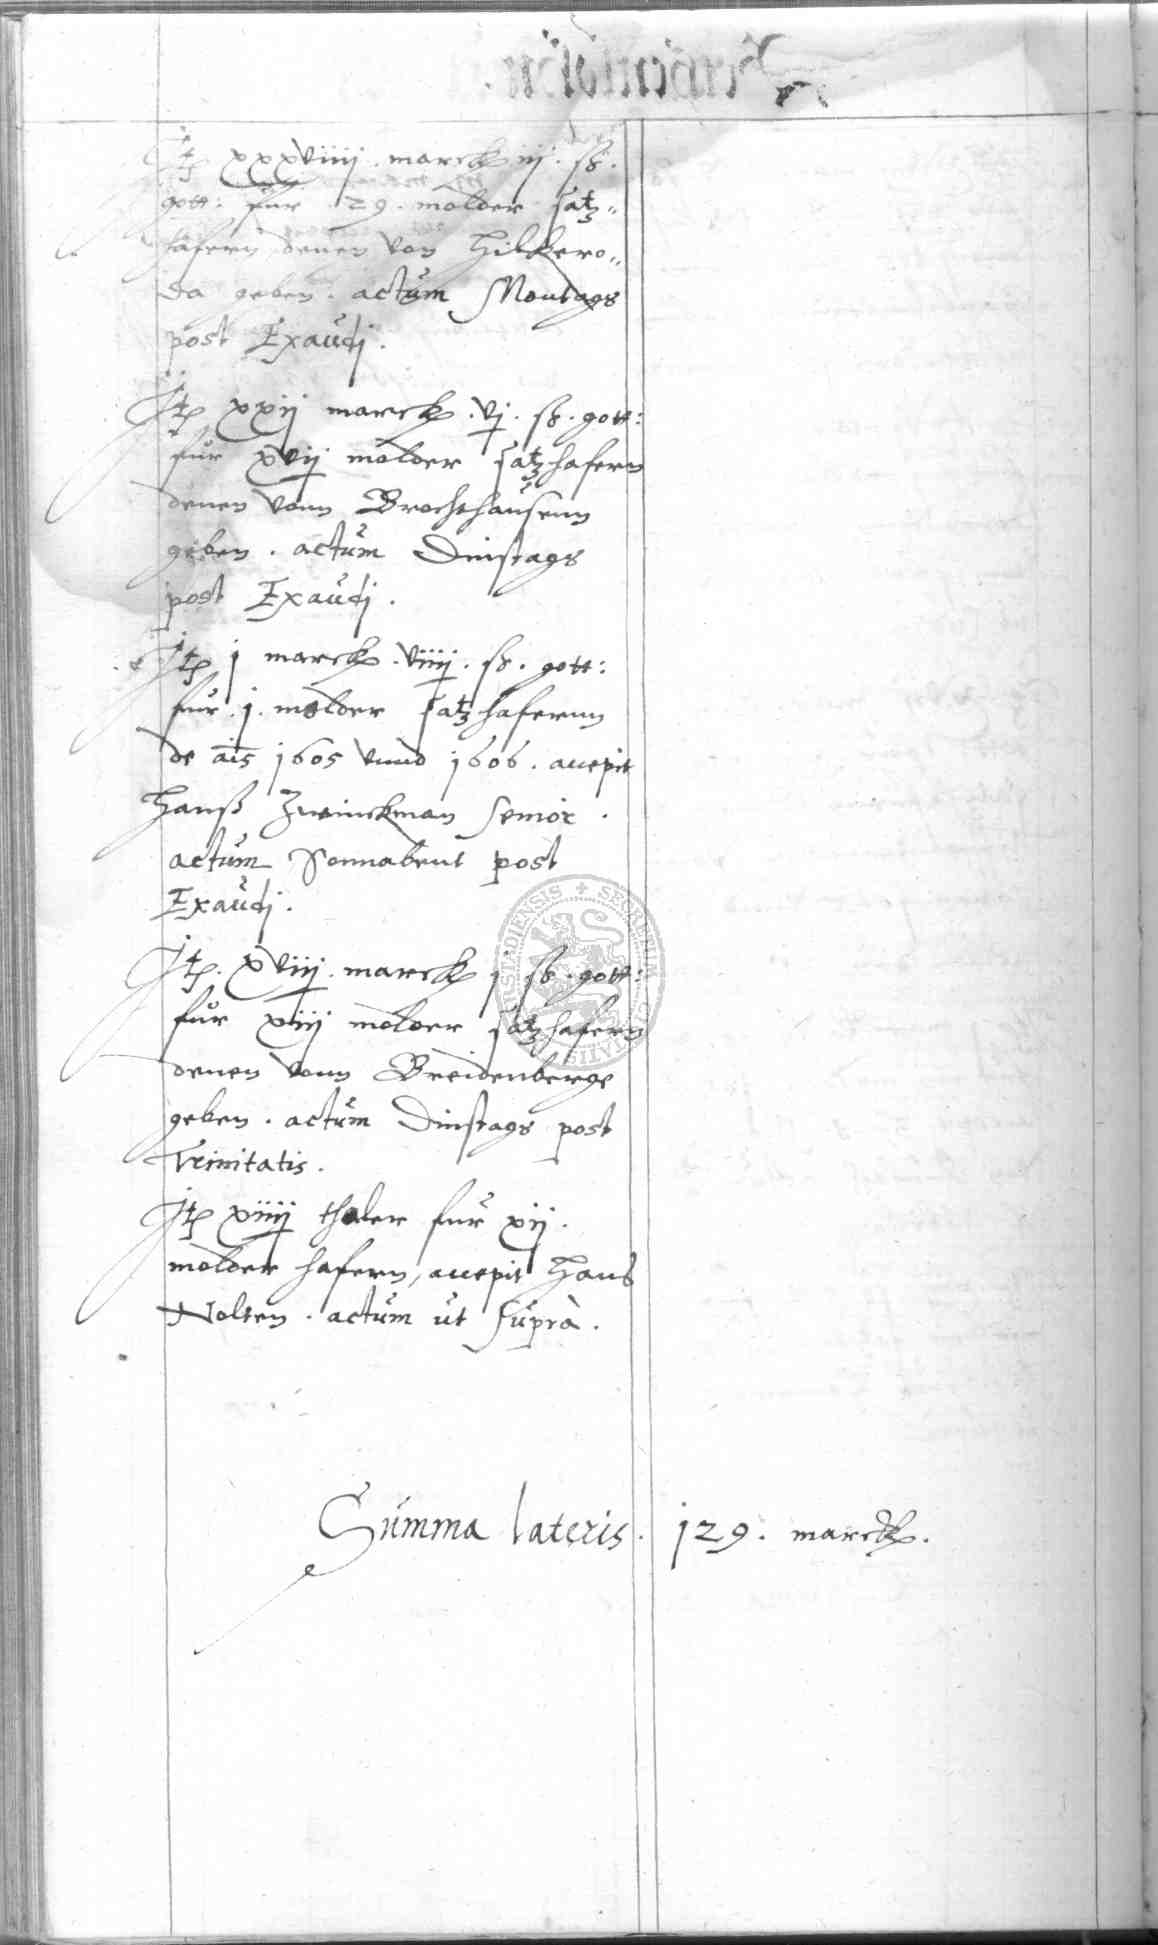 Jt xxxviiij marck iij ß.
gott: fur 29. molder satz„
hafern denen von Hilkero„
da geben. actum Montags
post Exaudi.
Jt xxij marck. vj. ß. gott:
fur xvij molder satzhafern
denen vonn Brochthausenn
geben. actum Dinstags
post Exaudi.
Jt j marck. viiij. ß. gott:
fur. j. molder satzhafernn
de ais 1605 vnnd 1606. accepit
Hanß Zwinckman senior.
actum Sonnabent post
Exaudi.
Jt. xviij. marck j ß. gott:
fur xiij molder satzhafern
denen vonn Breidenberge
geben. actum Dinstags post
Trinitatis.
Jt xiiij thaler fur xij.
molder hafern, accepit Hans
Nolten. actum ut suprà.
Summa lateris. 129. marck.